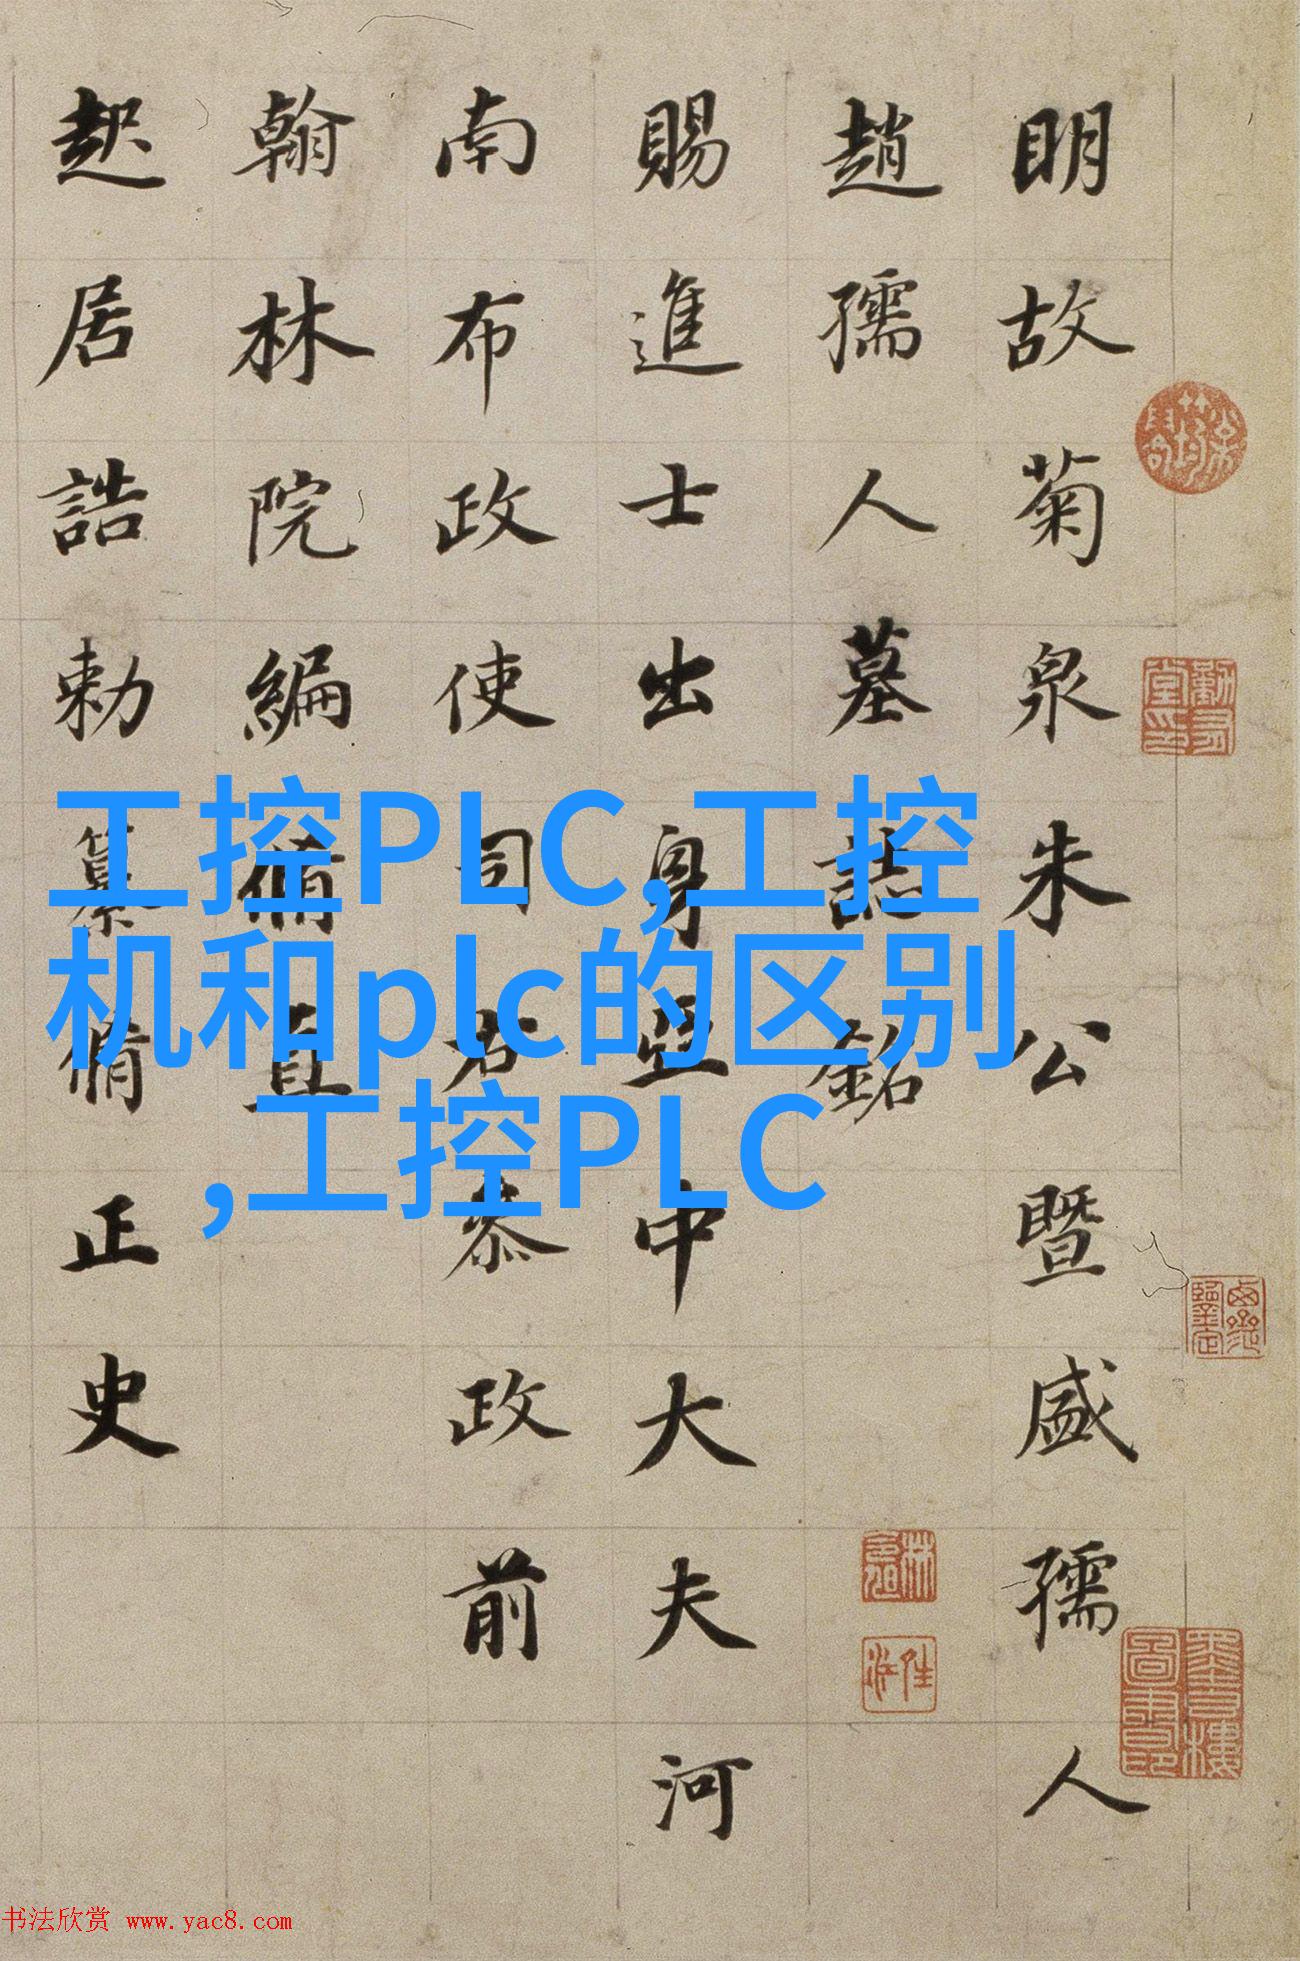 明故菊泉朱公暨盛孺人
趙孺人墓誌銘
賜進士出身亞中大夫河
南布政使司右叅政前
翰林院編脩直
起居誥勅纂脩正史
工控PLC,工控
机和plc的区别
,工控PLC
书法欣赏 www.yac8.com